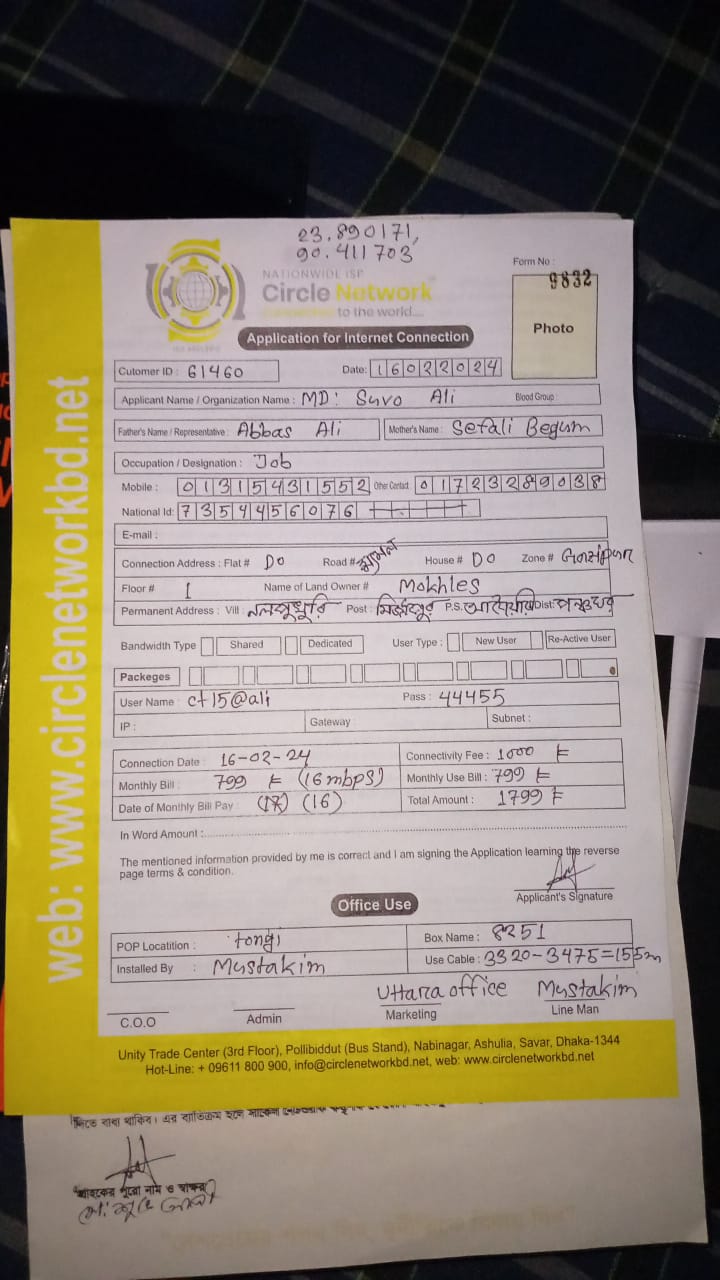 23.890171,
90.411703
NATIONWIDE ISP
Circle Network
Connecting to the world....
Form No :
9832
Photo
Application for Internet Connection
Cutomer ID : 61460 Date: 16022024
Applicant Name / Organization Name : MD: Suvo Ali Blood Group :
Father's Name / Representative : Abbas Ali Mother's Name : Sefali Begum
Occupation / Designation : Job
Mobile : 01315431552 Other Contact 01723289038
National Id: 7354456076
E-mail :
Connection Address : Flat # DO Road # House # DO Zone # Gazipur
Floor # 1 Name of Land Owner # Mokhles
Permanent Address : Vill Post : মির্জাপুর P.S. Dist:
Bandwidth Type Shared Dedicated User Type : New User Re-Active User
Packeges
User Name : ct15@ali Pass : 44455
IP : Gateway : Subnet :
Connection Date : 16-02-24 Connectivity Fee : 1000 ৳
Monthly Bill : 799 ৳ (16mbps) Monthly Use Bill : 799 ৳
Date of Monthly Bill Pay : (16) Total Amount : 1799 ৳
In Word Amount :
The mentioned information provided by me is correct and I am signing the Application learning the reverse
page terms & condition.
Applicant's Signature
Office Use
POP Locatition : tongi Box Name : 8251
Installed By : Mustakim Use Cable : 3320-3475=155m
Uttara office Mustakim
C.O.O Admin Marketing Line Man
Unity Trade Center (3rd Floor), Pollibiddut (Bus Stand), Nabinagar, Ashulia, Savar, Dhaka-1344
Hot-Line: + 09611 800 900, info@circlenetworkbd.net, web: www.circlenetworkbd.net
web: www.circlenetworkbd.net
গ্রাহকের পুরো নাম ও স্বাক্ষর